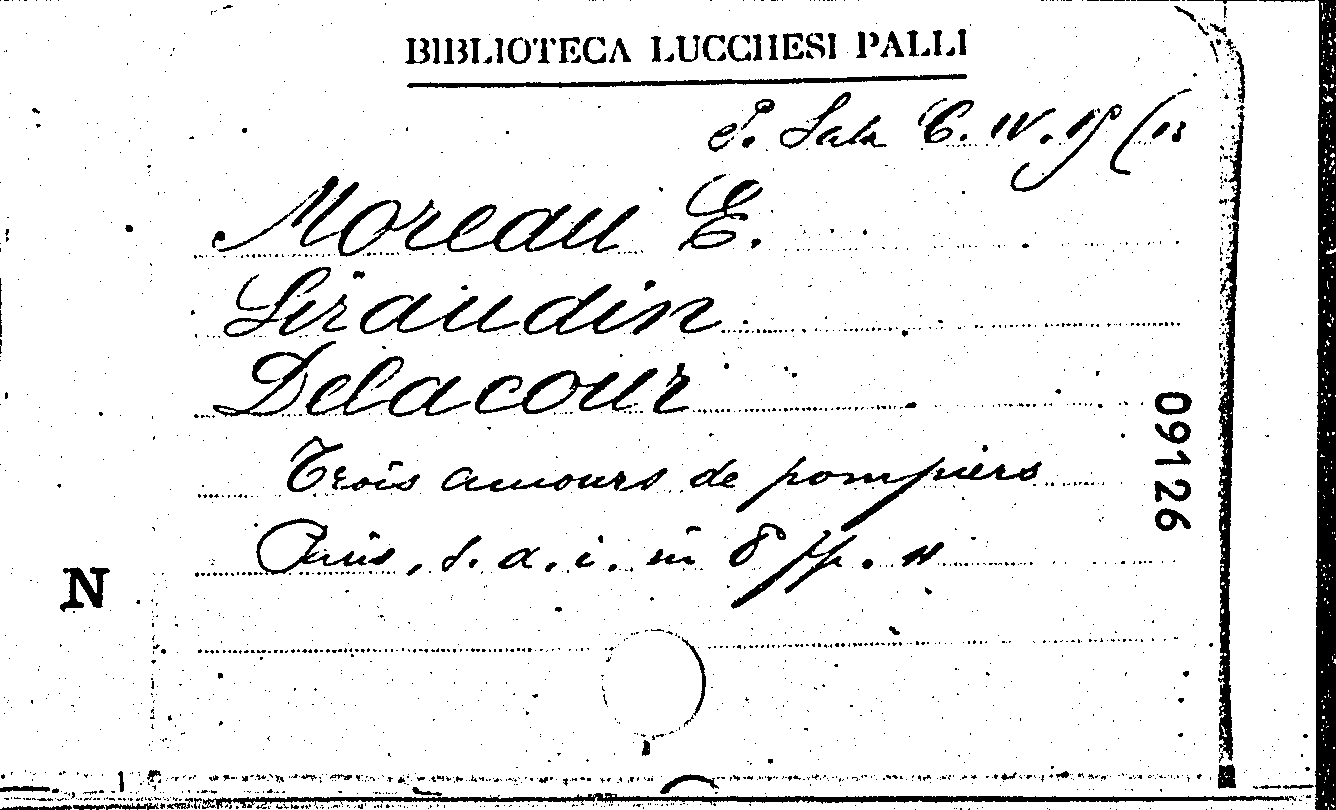 BIBLIOTECA LUCCHESI PALLI
Sala C. IV.
Moreau E.
Siraudin
Delacour
Trois amours de pompiers
Paris, s. a. i. in 8 pp. 11
09126
N